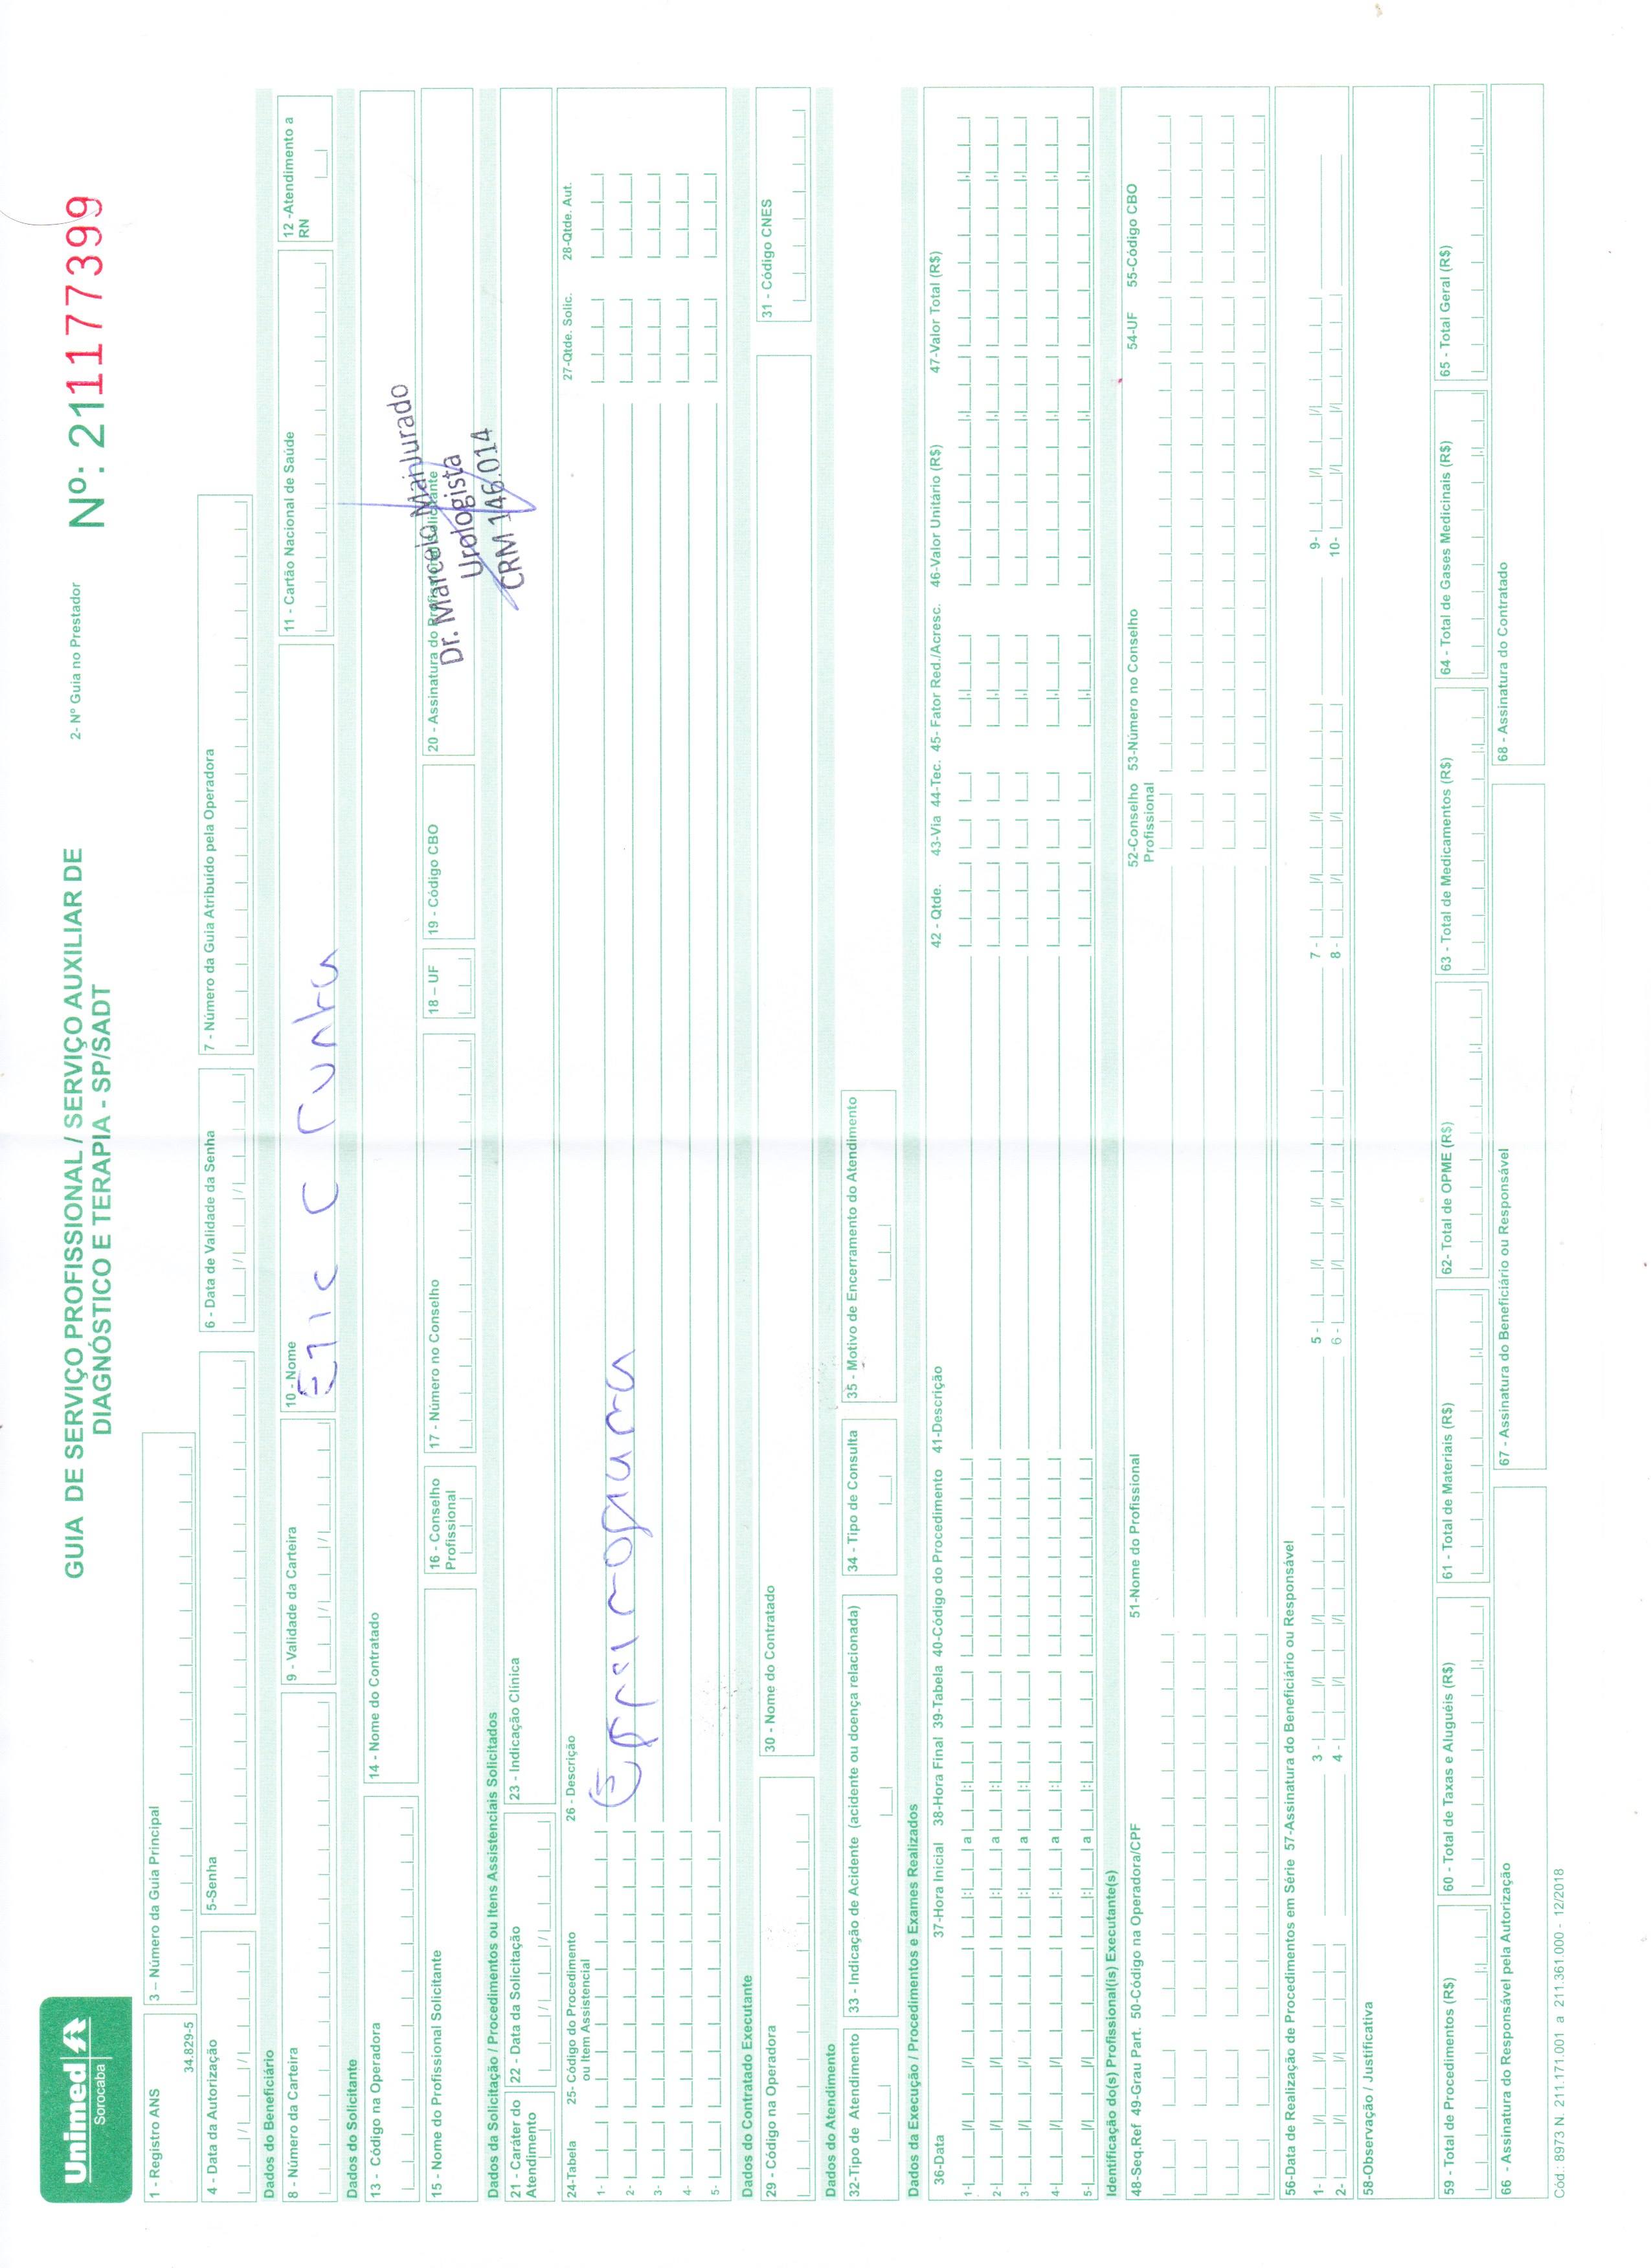 Unimed
Sorocaba
GUIA DE SERVIÇO PROFISSIONAL / SERVIÇO AUXILIAR DE
DIAGNÓSTICO E TERAPIA - SP/SADT
2- Nº Guia no Prestador
Nº: 211177399
1 - Registro ANS
34.829-5
3 – Número da Guia Principal
4 - Data da Autorização
5-Senha
6 - Data de Validade da Senha
7 - Número da Guia Atribuído pela Operadora
Dados do Beneficiário
8 - Número da Carteira
9 - Validade da Carteira
10 - Nome
C Cunha
11 - Cartão Nacional de Saúde
12 -Atendimento a
RN
Dados do Solicitante
13 - Código na Operadora
14 - Nome do Contratado
15 - Nome do Profissional Solicitante
16 - Conselho
Profissional
17 - Número no Conselho
18 – UF
19 - Código CBO
20 - Assinatura do Profissional Solicitante
Dr. Marcelo Manjurado
Urologista
CRM 146.014
Dados da Solicitação / Procedimentos ou Itens Assistenciais Solicitados
21 - Caráter do
Atendimento
22 - Data da Solicitação
23 - Indicação Clínica
24-Tabela
25- Código do Procedimento
ou Item Assistencial
26 - Descrição
27-Qtde. Solic.
28-Qtde. Aut.
1-
Espermograma
2-
3-
4-
5-
Dados do Contratado Executante
29 - Código na Operadora
30 - Nome do Contratado
31 - Código CNES
Dados do Atendimento
32-Tipo de Atendimento
33 - Indicação de Acidente (acidente ou doença relacionada)
34 - Tipo de Consulta
35 - Motivo de Encerramento do Atendimento
Dados da Execução / Procedimentos e Exames Realizados
36-Data
37-Hora Inicial
38-Hora Final
39-Tabela
40-Código do Procedimento
41-Descrição
42 - Qtde.
43-Via
44-Tec.
45- Fator Red./Acresc.
46-Valor Unitário (R$)
47-Valor Total (R$)
1- a
2- a
3- a
4- a
5- a
Identificação do(s) Profissional(is) Executante(s)
48-Seq.Ref
49-Grau Part.
50-Código na Operadora/CPF
51-Nome do Profissional
52-Conselho
Profissional
53-Número no Conselho
54-UF
55-Código CBO
56-Data de Realização de Procedimentos em Série
57-Assinatura do Beneficiário ou Responsável
1- 3 - 5 - 7 - 9-
2- 4 - 6 - 8 - 10-
58-Observação / Justificativa
59 - Total de Procedimentos (R$)
60 - Total de Taxas e Aluguéis (R$)
61 - Total de Materiais (R$)
62- Total de OPME (R$)
63 - Total de Medicamentos (R$)
64 - Total de Gases Medicinais (R$)
65 - Total Geral (R$)
66 - Assinatura do Responsável pela Autorização
67 - Assinatura do Beneficiário ou Responsável
68 - Assinatura do Contratado
Cód.: 8973 N. 211.171.001 a 211.361.000 - 12/2018